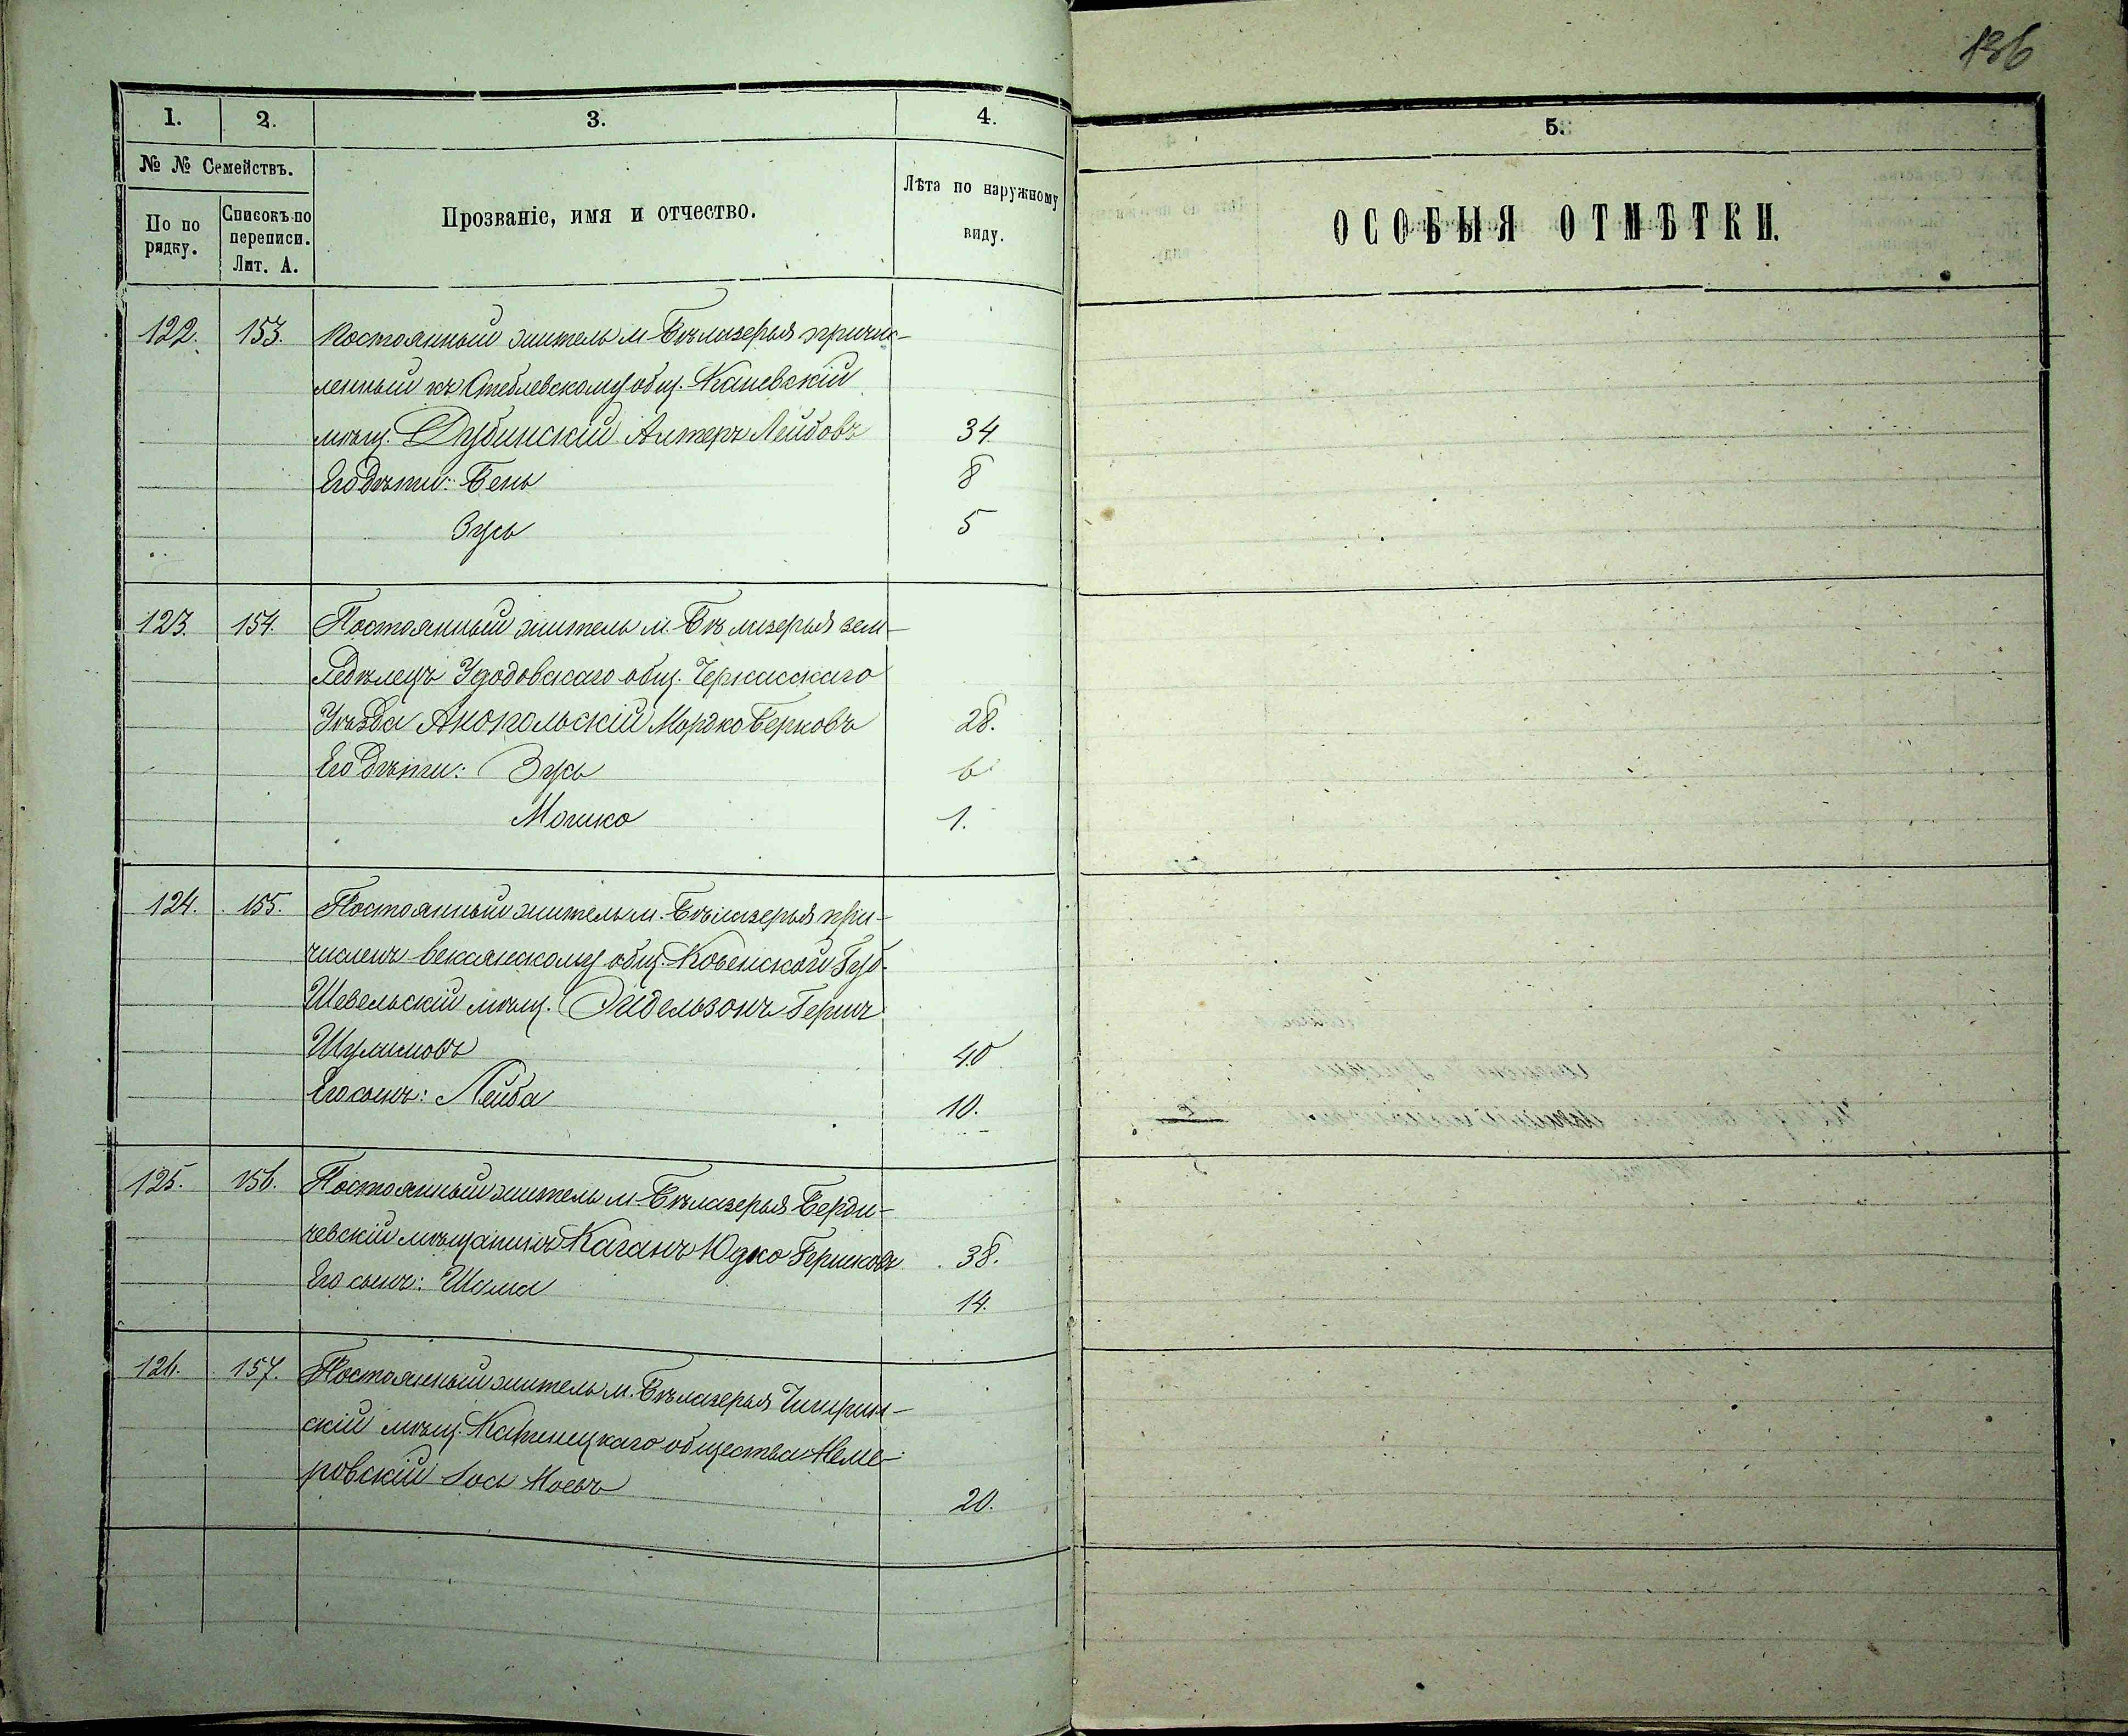 136
1. 2. 3. 4. 5.
№ № Семействъ.
По по рядку.
Списокъ по переписи. Лит. А.
Прозваніе, имя и отчество.
Лѣта по наружному виду.
ОСОБЫЯ ОТМѢТКИ.
122. 153. Постоянный житель м. Бѣлазерья причис-
ленный къ Стеблевскому общ. Каневскій
мѣщ. Дубинскій Алтеръ Лейбовъ 34
Его дѣти: Бень 8
Зусь 5
123. 154. Постоянный житель м. Бѣлазерья зем-
ледѣлецъ общ. Черкасскаго
Уѣзда Анопольскій Мордко Берковъ 28.
Его дѣти: Зусь 6
Мошко 1.
124. 155. Постоянный житель м. Бѣлазерья при-
численъ общ. Ковенской Губ.
Шавельскій мѣщ. Эйдельзонъ Гершъ
Шулимовъ 40
Его сынъ: Лейба 10.
125. 156. Постоянный житель м. Бѣлазерья Берди-
чевскій мѣщанинъ Каганъ Юдко Гершковъ 38.
Его сынъ: Шама 14.
126. 157. Постоянный житель м. Бѣлазерья Чигирин-
скій мѣщ. общества Неме-
ровскій Іось 20.